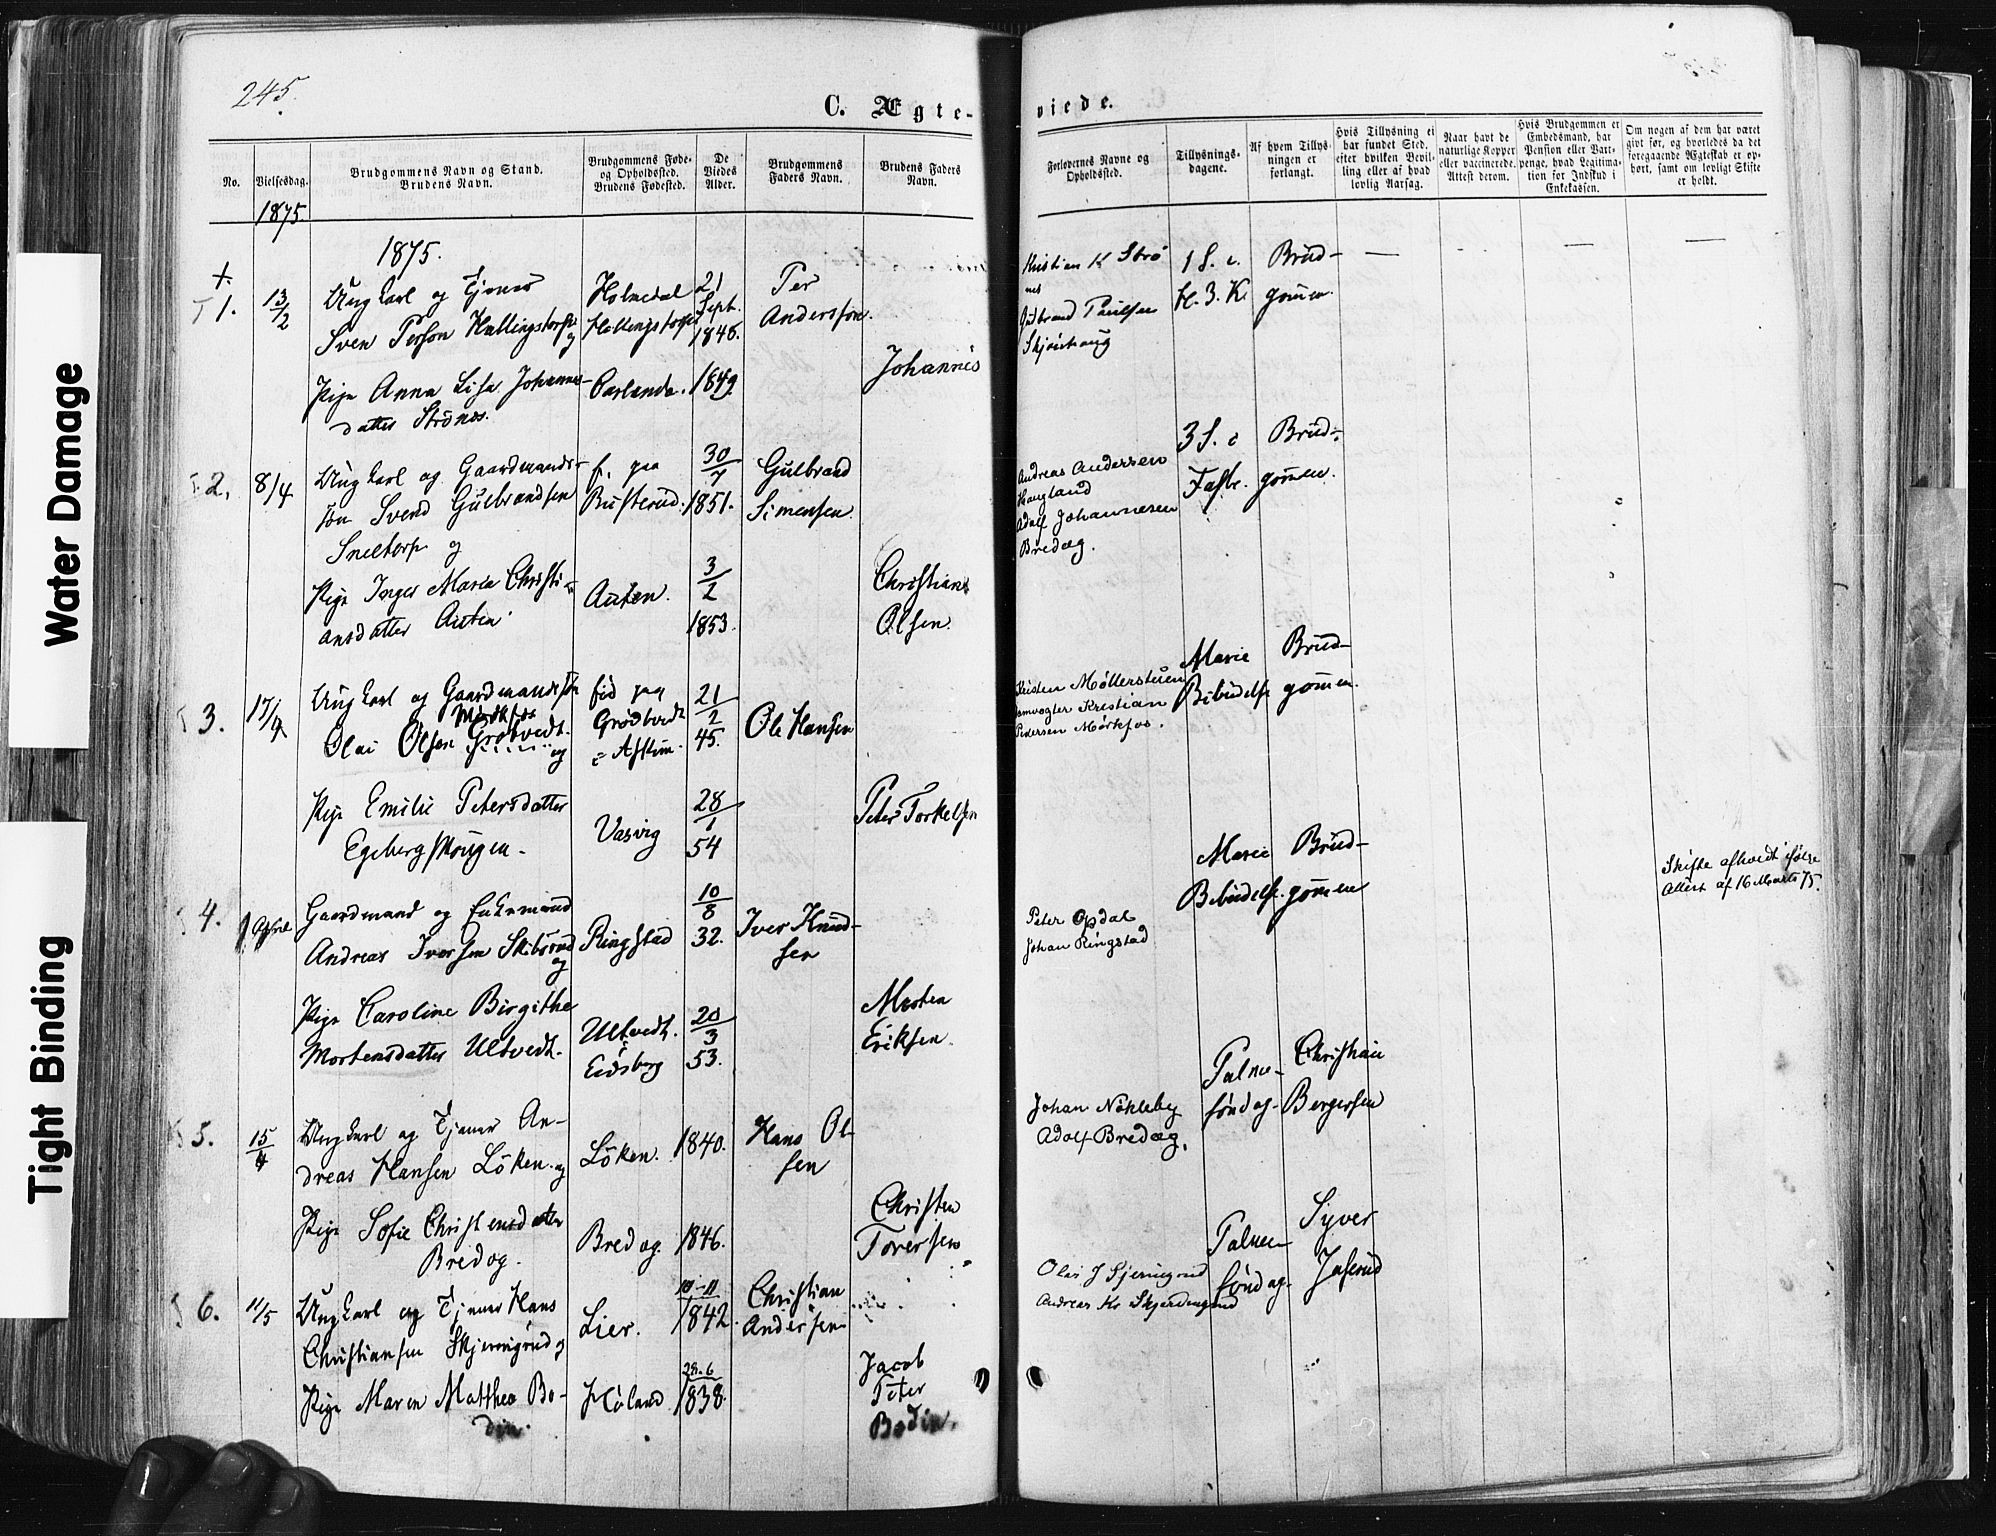 Water Damage
Tight Binding
245.
C. Ægte-
viede.
No.
Vielsesdag.
Brudgommens Navn og Stand.
Brudens Navn.
Brudgommens Føde-
og Opholdssted.
Brudens Fødested.
De
Viedes
Alder.
Brudgommens
Faders Navn.
Brudens Faders
Navn.
Forlovernes Navne og
Opholdssted.
Tillysnings-
dagene.
Af hvem Tillys-
ningen er
forlangt.
Hvis Tillysning ei
har fundet Sted,
efter hvilken Bevil-
ling eller af hvad
lovlig Aarsag.
Naar havt de
naturlige Kopper
eller vaccinerede.
Attest derom.
Hvis Brudgommen er
Embedsmand, har
Pension eller Vart-
penge, hvad Legitima-
tion for Indskud i
Enkekassen.
Om nogen af dem har været
givt før, og hvorledes da det
foregaaende Ægteskab er op-
hørt, samt om lovligt Skifte
er holdt.
1875
1875.
+
1. 13/2
Ungkarl og Tjener
Sven Person Hallingstorp
og
Pige Anna Lisa Johannes-
datter Strönes.
Holmedal
Carlanda.
21
Sept.
1846.
1849.
Per
Andersson.
Johannes
Kristian K Strö
nes
Gulbrand Paulsen
Skjönhaug
1 S. e.
H. 3. K.
Brud-
gommen.
2. 8/4
Ungkarl og Gaardmands-
søn Svend Gulbrandsen
Sneltorp og
Pige Inger Maria Christi-
ansdatter Auten
f. paa
Busterud.
Auten.
30/7
1851.
3/2
1853.
Gulbrand
Simensen
Christian
Olsen.
Andreas Andersen
Haugland
Adolf Johannesen
Bredag.
3 S. i
Faste.
Brud-
gommen.
3. 17/4
Ungkarl og Gaardmandssøn
Mörkfos
Olai Olsen Grötvedt.
og
Pige Emilie Petersdatter
Egeberg
fød paa
Grödtvedt
i Askim.
Vasvig
21/2
45.
28/1
54
Ole Hansen
Peter Torkelsen
Kristen Møllerstuen
Kristian
Pedersen Mørkfos.
Marie
Bebudelse
Brud-
gommen.
4. 1 April
Gaardmand og Enkemand
Andreas Iversen Skibsrud
og
Pige Caroline Birgithe
Mortensdatter Ultvedt.
Ringstad
Ultvedt.
i
Eidsberg
10/8
32.
20/3
53.
Iver Knud-
sen
Morten
Eriksen.
Peter Opdal
Johan Ringstad
Marie
Bebudelse.
Brud-
gommen
Skifte afholdt ifølge
Attest af 16 Marts 75.
5. 15/4
Ungkarl og Tjener An-
dreas Hansen Löken og
Pige Sofie Christensdatter
Bredog.
Löken.
Bredog.
1840.
1846.
Hans Ol-
sen
Christen
Toversen
Johan Nökleby
Adolf Bredag.
Palme-
söndag.
Christian
Bergersen
6. 11/5
Ungkarl og Tjener Hans
Christiansen Skjerningrud og
Pige Maren Mathea Bo-
din.
Lier.
Høland
10-11
1842.
29-6
1838.
Christian
Andersen
Jacob
Peter
Bodin.
Andreas Kr Skjerdingrud
Palme-
söndag.
Syver
Jaserud